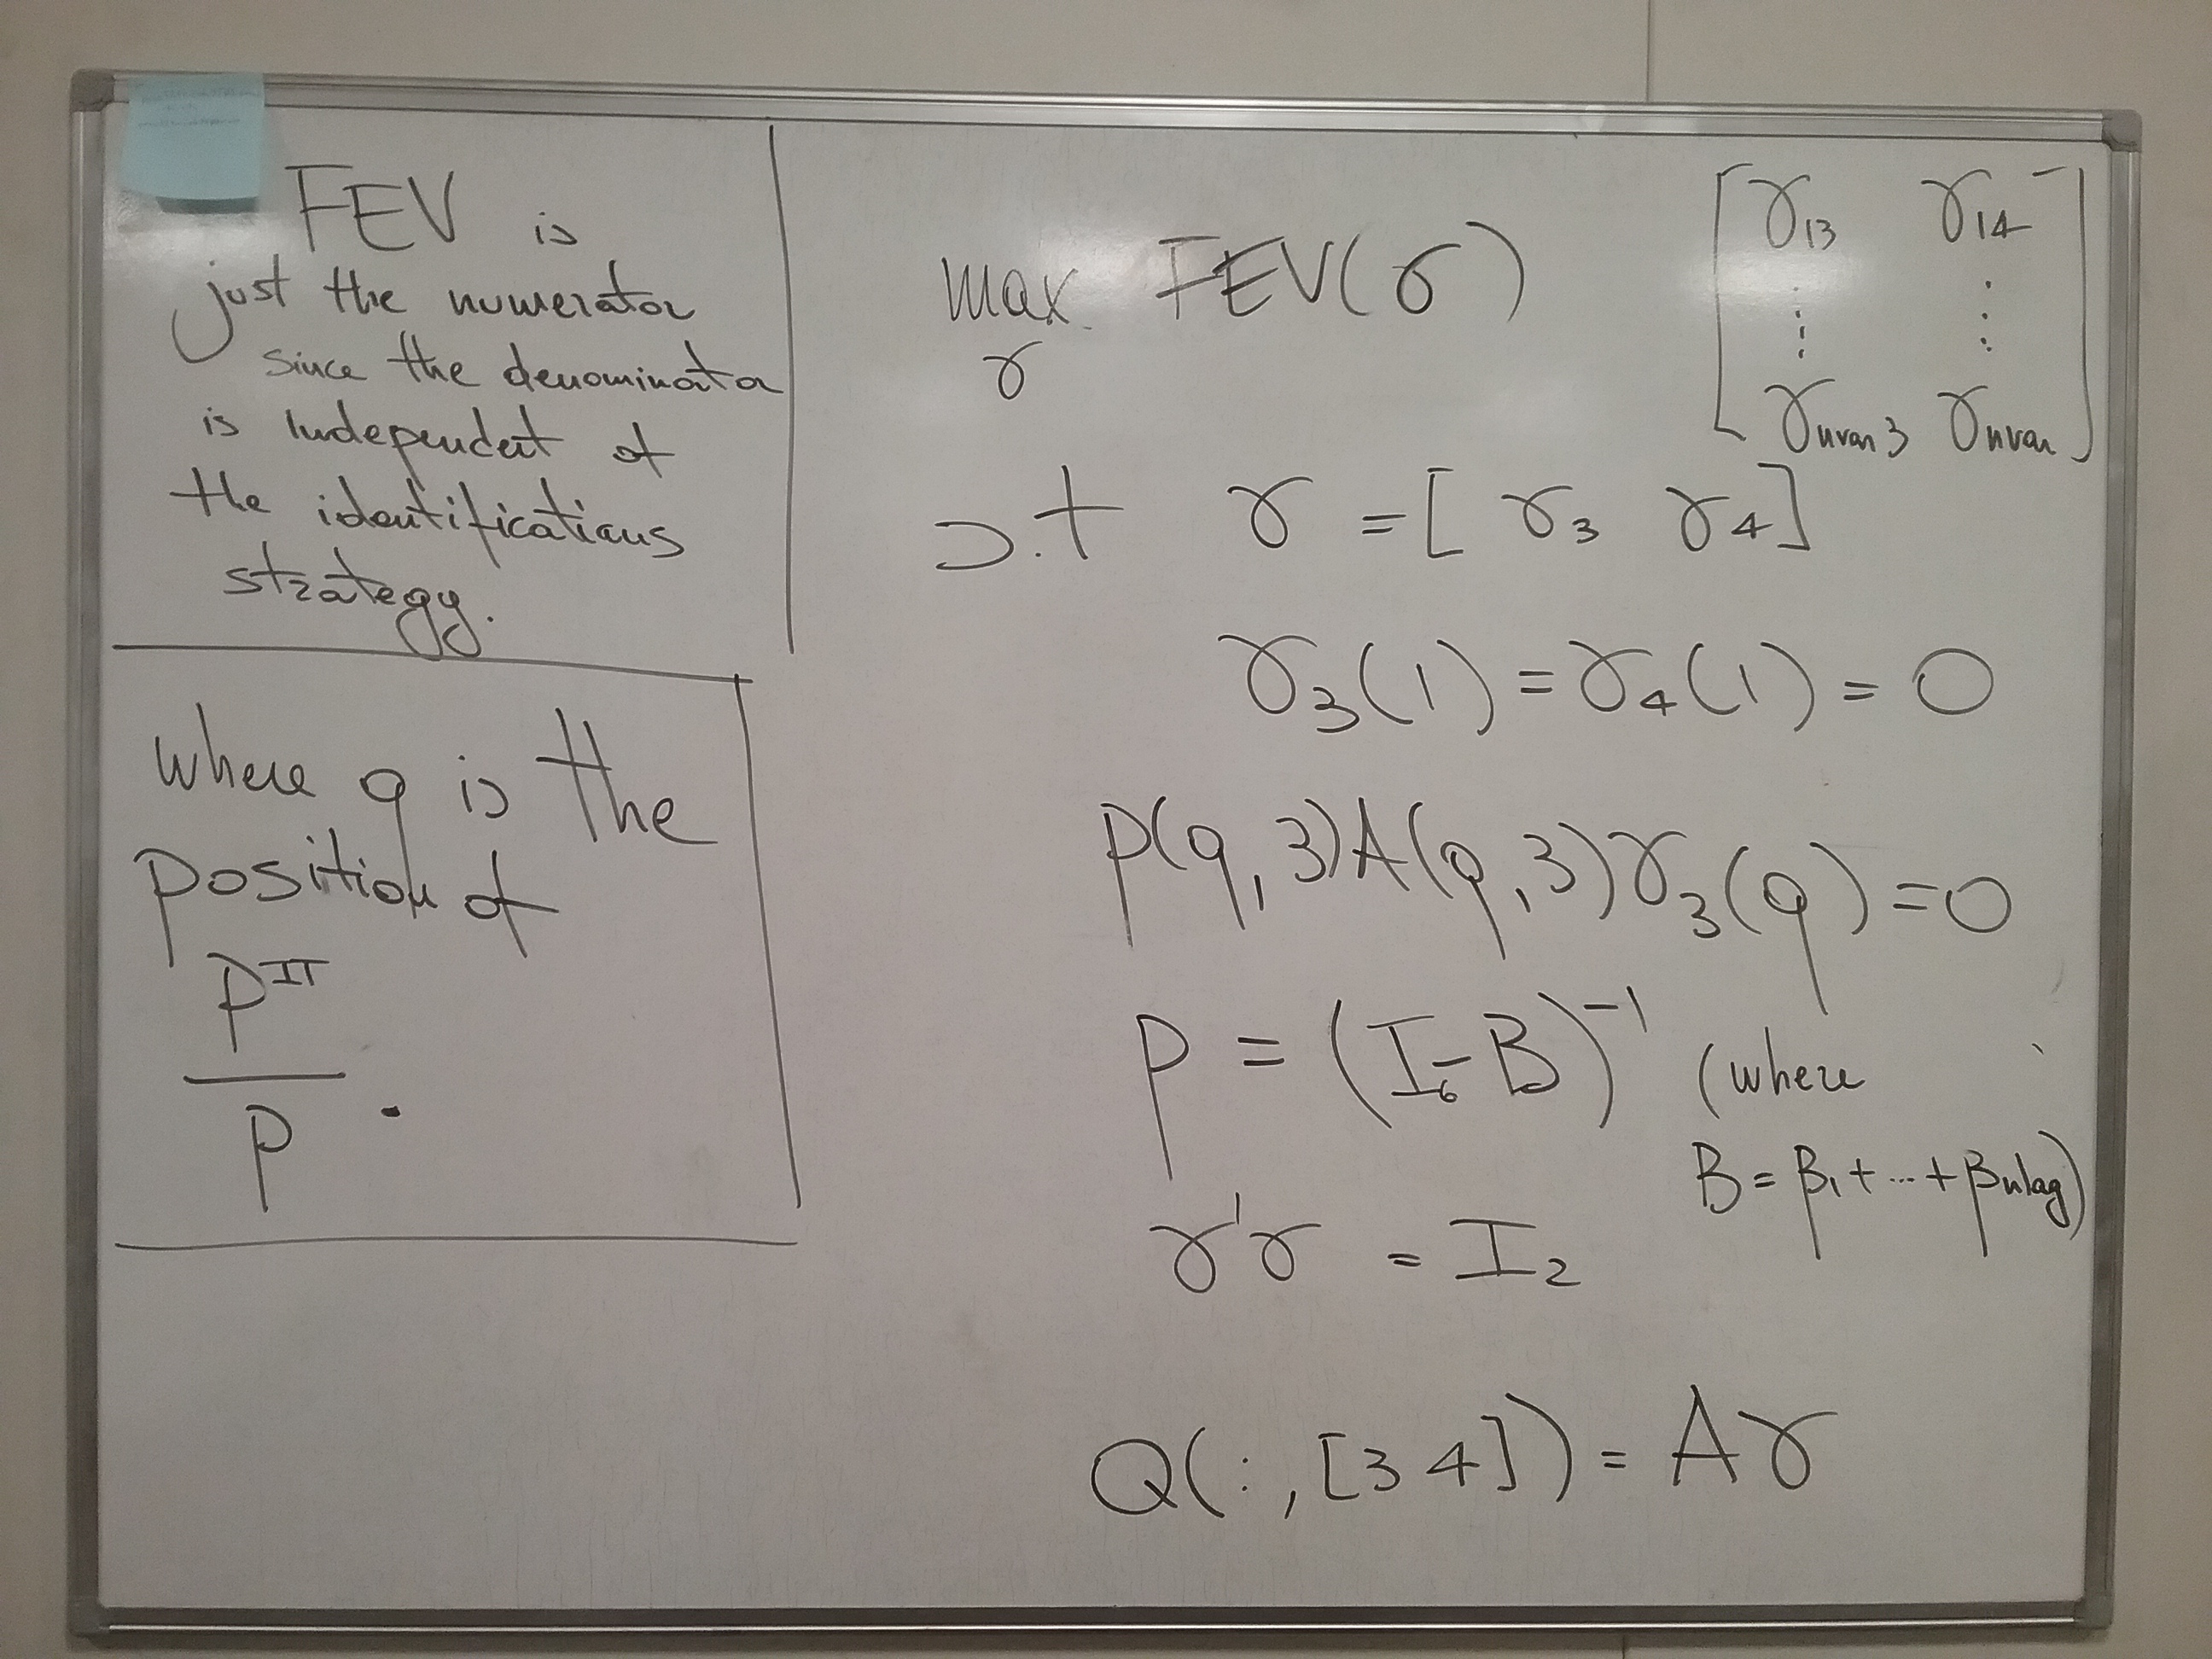 FEV is
just the numerator
since the denominator
is independent of
the identifications
strategy.
where q is the
position of
P^IT
P .
max FEV(γ)
γ
[ γ13 γ14
⋮ ⋮
γnvar3 γnvar ]
s.t γ = [ γ3 γ4 ]
γ3(1) = γ4(1) = 0
P(q,3)A(q,3)γ3(q) = 0
P = (I6 - B)^-1 (where
B = β1 + ... + βnlag)
γ'γ = I2
Q(:,[3 4]) = Aγ